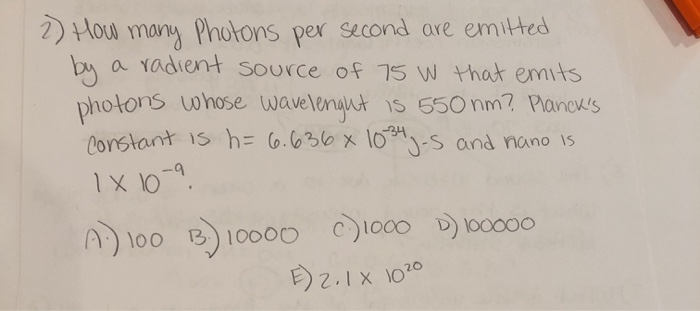 2) How many Photons per second are emitted
by a radient source of 75 W that emits
photons whose wavelenght is 550 nm? Planck's
Constant is h= 6.636 x 10^-34 j-s and nano is
1 x 10^-9.
A.) 100 B.) 10000 C.) 1000 D) 100000
E) 2.1 x 10^20